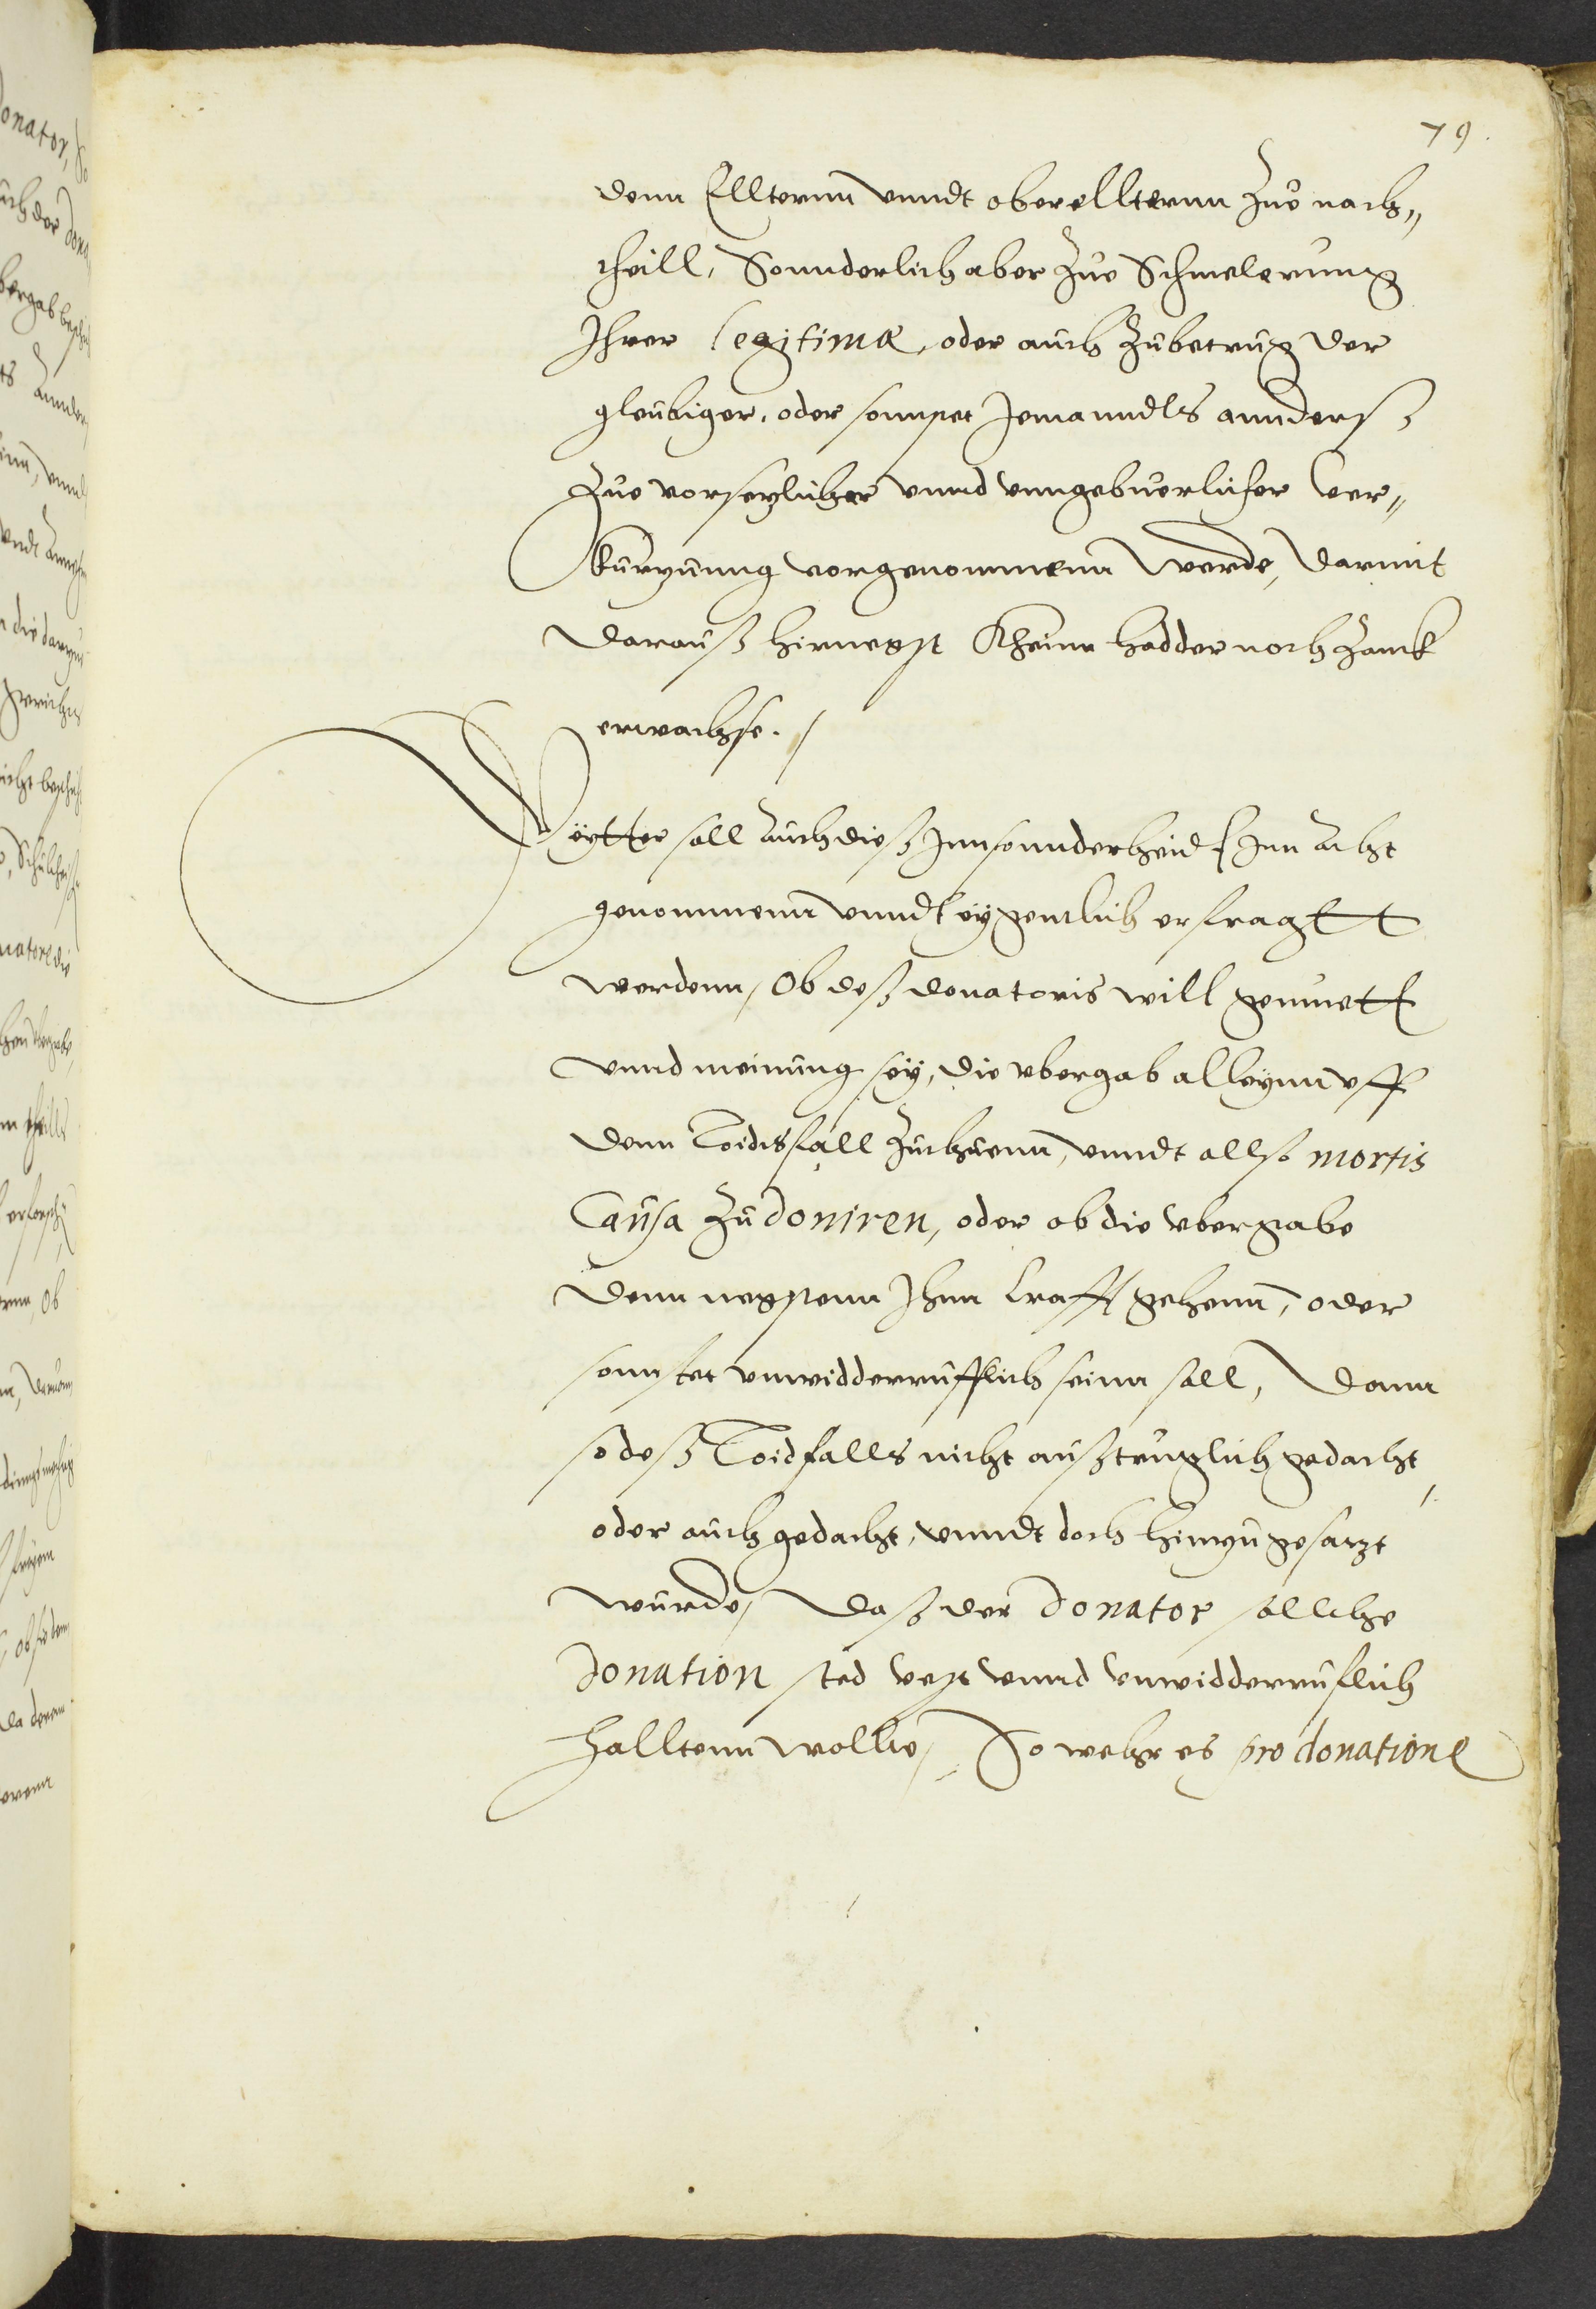 79.
denn Elltternn vnndt oberellternn Zue nach„
theill, Sonnderlich aber Zue Schmelerung
Ihrer legitimæ, oder auch Zubetrug der
gleubiger, oder sonnster Jemanndts annderß
Zue vorsezlicher vnnd vnngebuerlicher Ver„
kurzunng vorgenommenn werde, darmit
darauß hirnegst Kheinn hadder noch Zanck
erwachse. /
Weytter soll auch dieß Innsonnderheid Inn acht
genommenn vnndt eygentlich erfragtt
werdenn, Ob deß donatoris will gemuett
vnnd meinung sey, die vbergab alleynn vff
denn Toidtsfall Zuthuenn, vnndt allso mortis
Causa Zu doniren, oder ob die vbergabe
denn negstenn Ihnn krafft gehenn, oder
sonnster vnwidderrufflich seinn soll, dann
so deß Toidfalls nicht außtruglich gedacht,
oder auch gedacht, vnndt doch hinzu gesatzt
wurde, daß der Donator sollche
Donation sted vest vnnd vnwidderruflich
halltenn wollte, So wehr es pro donatione